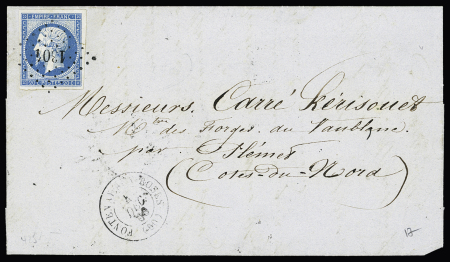 EMPIRE FRANC
1304
Messieurs. Carré Kérisouet
Mtres des Forges du Vaublanc
par Plémet
(Cotes-du-Nord)